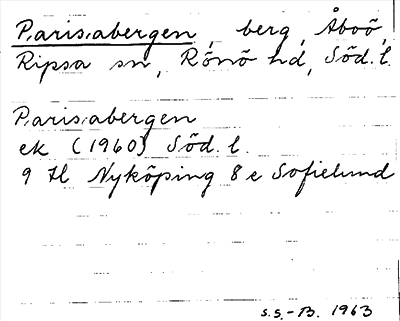 Parisabergen, berg, Åboö,
Ripsa sn, Rönö hd, Söd. l.
Parisabergen
ek (1960) Söd. l.
9 H Nyköping 8 e Sofielund
S.S.-B. 1963